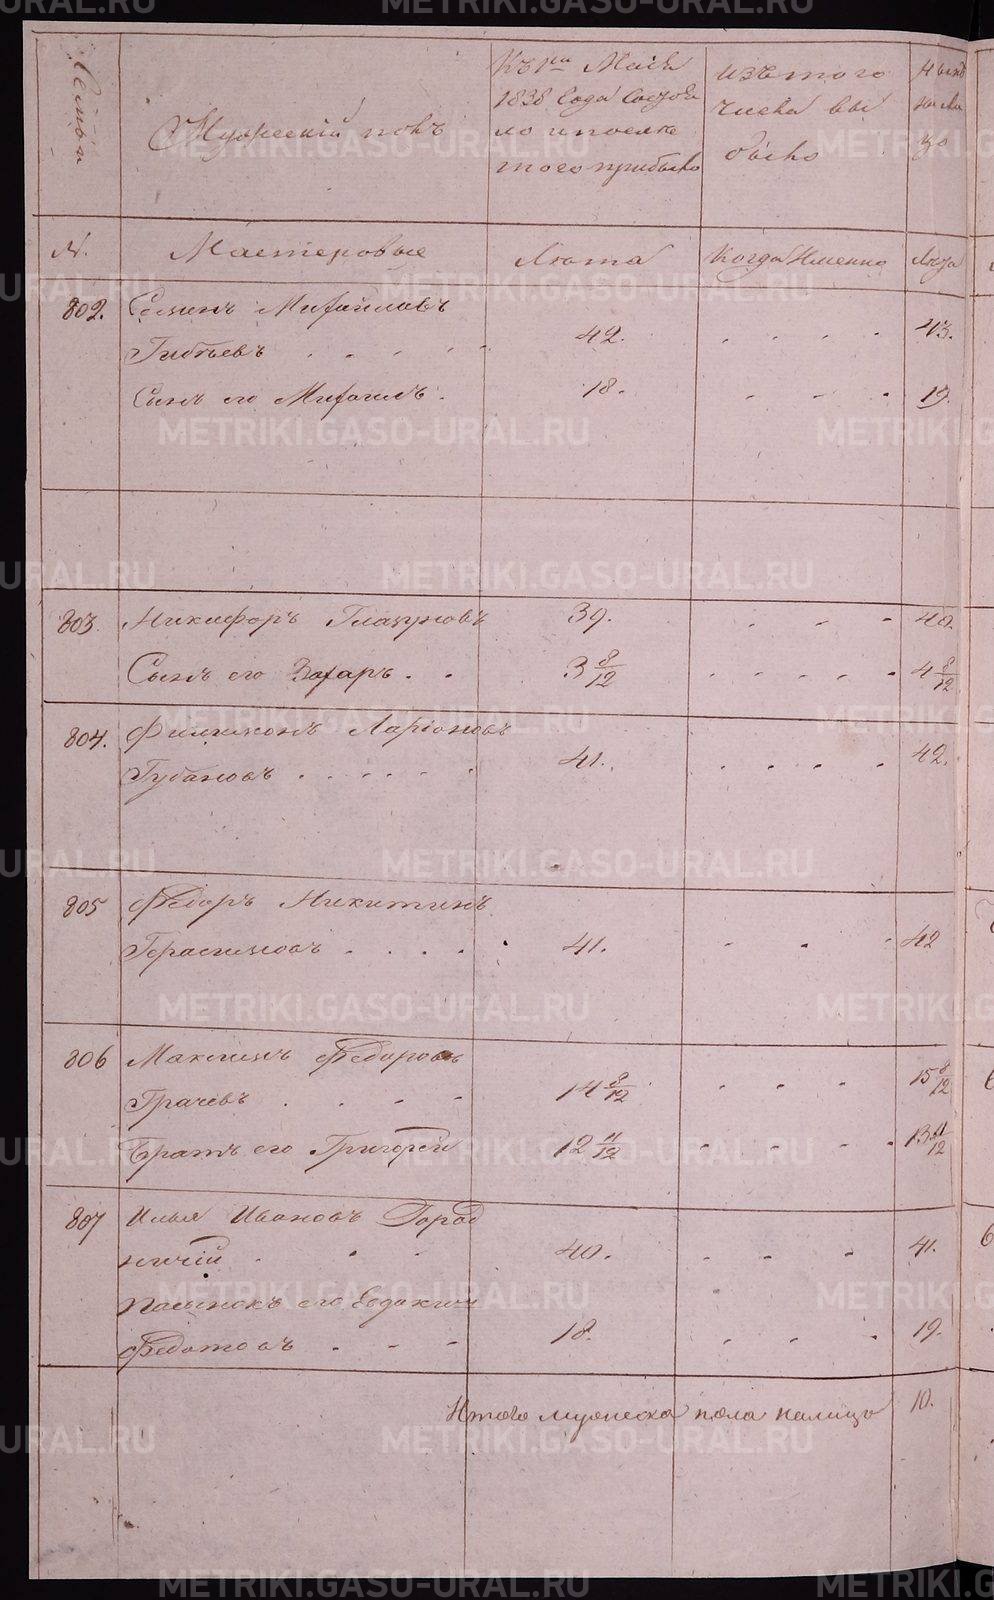 Семьи
Мужескій полъ
Къ 1му Маія
1838 года состоя
ло и после
того прибыло
изъ того
числа вы
было
Ныне
на ли
цо
№.
Мастеровые
Лѣта
Когда Именно
Лѣта
802.
Семенъ Михайловъ
42.
43.
Сынъ его Михаилъ.
18.
19.
803.
Никифоръ Глазуновъ
39.
40
Сынъ его Захаръ.
3 8/12
4 8/12
804.
Филимонъ Ларіоновъ
Губановъ
41.
42.
805
Федоръ Никитинъ
Герасимовъ
41.
42
806
Максимъ Федоровъ
Грачевъ
14 8/12
15 8/12
Братъ его Григорей
12 11/12
13 11/12
807
Илья Ивановъ Город
ничій
40.
41.
Пасынокъ его Евдокимъ
Федотовъ
18.
19.
Итого мужеска пола налицо
10.
METRIKI.GASO-URAL.RU